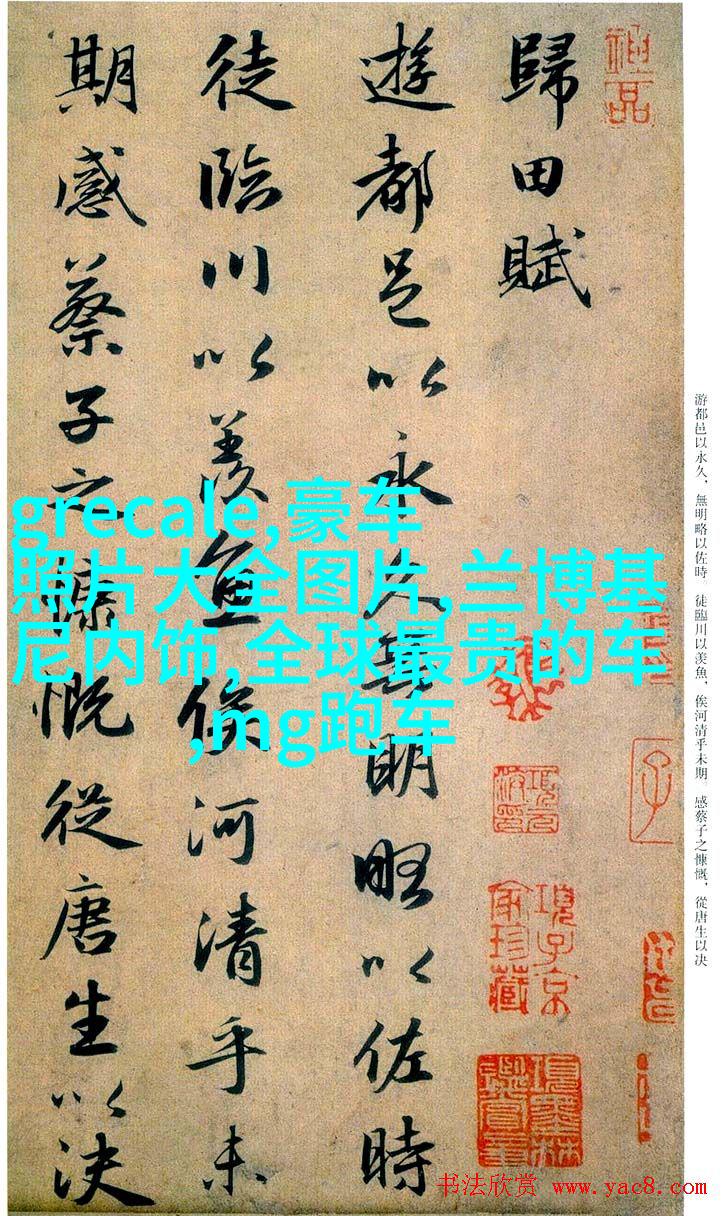 歸田賦
遊都邑以永久無明略以佐時
徒臨川以羡魚俟河清乎未
期感蔡子之慷慨從唐生以決
游都邑以永久，無明略以佐時　徒臨川以羨魚，俟河清乎未期。感蔡子之慷慨，從唐生以決
grecale,豪车
照片大全图片,兰博基
尼内饰,全球最贵的车
,mg跑车
項子京
家珍藏
项墨林
书法欣赏 www.yac8.com